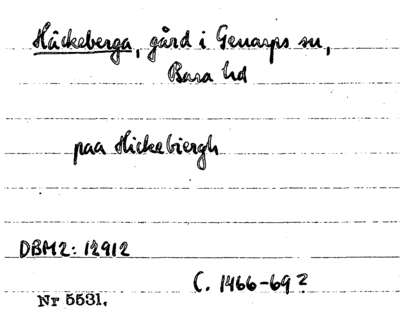 Häckeberga, gård i Genarps sn,
Bara hd
paa Hickebiergh
DBM2: 12912
C. 1466-69?
Nr 5531.